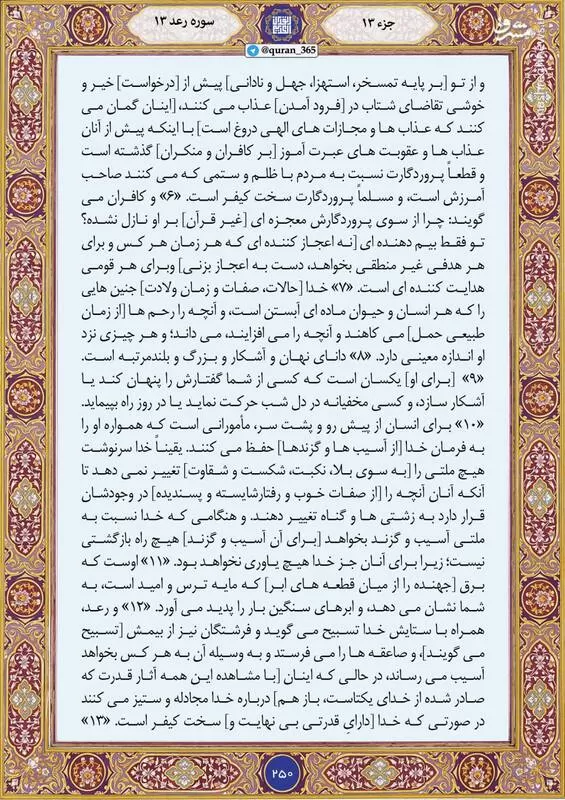 جزء ۱۳
سوره رعد ۱۳
مشرق
@quran_365
و از تو [بر پایه تمسخر، استهزا، جهل و نادانی] پیش از [درخواست] خیر و
خوشی تقاضای شتاب در [فرود آمدن] عذاب می کنند، [اینان گمان می
کنند که عذاب ها و مجازات های الهی دروغ است] با اینکه پیش از آنان
عذاب ها و عقوبت های عبرت آموز [بر کافران و منکران] گذشته است
و قطعاً پروردگارت نسبت به مردم با ظلم و ستمی که می کنند صاحب
آمرزش است، و مسلماً پروردگارت سخت کیفر است. «۶» و کافران می
گویند: چرا از سوی پروردگارش معجزه ای [غیر قرآن] بر او نازل نشده؟
تو فقط بیم دهنده ای [نه اعجاز کننده ای که هر زمان هر کس و برای
هر هدفی غیر منطقی بخواهد، دست به اعجاز بزنی] وبرای هر قومی
هدایت کننده ای است. «۷» خدا [حالات، صفات و زمان ولادت] جنین هایی
را که هر انسان و حیوان ماده ای آبستن است، و آنچه را رحم ها [از زمان
طبیعی حمل] می کاهند و آنچه را می افزایند، می داند؛ و هر چیزی نزد
او اندازه معینی دارد. «۸» دانای نهان و آشکار و بزرگ و بلندمرتبه است.
«۹» [برای او] یکسان است که کسی از شما گفتارش را پنهان کند یا
آشکار سازد، و کسی مخفیانه در دل شب حرکت نماید یا در روز راه بپیماید.
«۱۰» برای انسان از پیش رو و پشت سر، مأمورانی است که همواره او را
به فرمان خدا [از آسیب ها و گزندها] حفظ می کنند. یقیناً خدا سرنوشت
هیچ ملتی را [به سوی بلا، نکبت، شکست و شقاوت] تغییر نمی دهد تا
آنکه آنان آنچه را [از صفات خوب و رفتارشایسته و پسندیده] در وجودشان
قرار دارد به زشتی ها و گناه تغییر دهند. و هنگامی که خدا نسبت به
ملتی آسیب و گزند بخواهد [برای آن آسیب و گزند] هیچ راه بازگشتی
نیست؛ زیرا برای آنان جز خدا هیچ یاوری نخواهد بود. «۱۱» اوست که
برق [جهنده را از میان قطعه های ابر] که مایه ترس و امید است، به
شما نشان می دهد، و ابرهای سنگین بار را پدید می آورد. «۱۲» و رعد،
همراه با ستایش خدا تسبیح می گوید و فرشتگان نیز از بیمش [تسبیح
می گویند]، و صاعقه ها را می فرستد و به وسیله آن به هر کس بخواهد
آسیب می رساند، در حالی که اینان [با مشاهده این همه آثار قدرت که
صادر شده از خدای یکتاست، باز هم] درباره خدا مجادله و ستیز می کنند
در صورتی که خدا [دارایِ قدرتی بی نهایت و] سخت کیفر است. «۱۳»
۲۵۰